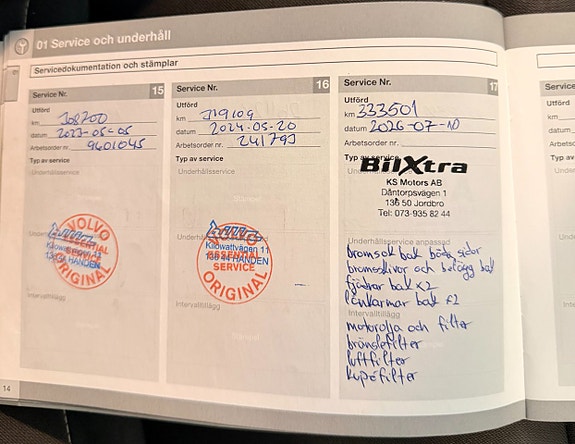 01 Service och underhåll
Servicedokumentation och stämplar
Service Nr. 15
Utfört
km
datum 2023-05-05
Arbetsorder nr. 9401045
Typ av service
Underhållsservice
VOLVO
ESSENTIAL
SERVICE
Kilowattvägen 11
136 44 HANDEN
ORIGINAL
Intervalltillägg
Service Nr. 16
Utfört
km
datum 2024-05-20
Arbetsorder nr. 241793
Typ av service
Underhållsservice
Stämpel
VOLVO
Kilowattvägen 11
ESSENTIAL
136 44 HANDEN
SERVICE
ORIGINAL
Intervalltillägg
Stämpel
Service Nr. 17
Utfört
km 333501
datum 2026-07-10
Arbetsorder nr.
Typ av service
BilXtra
KS Motors AB
Dåntorpsvägen 1
136 50 Jordbro
Tel: 073-935 82 44
Underhållsservice anpassad
bromsok bak båda sidor
bromsskivor och belägg bak
fjädrar bak x2
länkarmar bak x2
Intervalltillägg
motorolja och filter
bränslefilter
luftfilter
kupéfilter
14
Service
Utfört
km
datum
Typ av